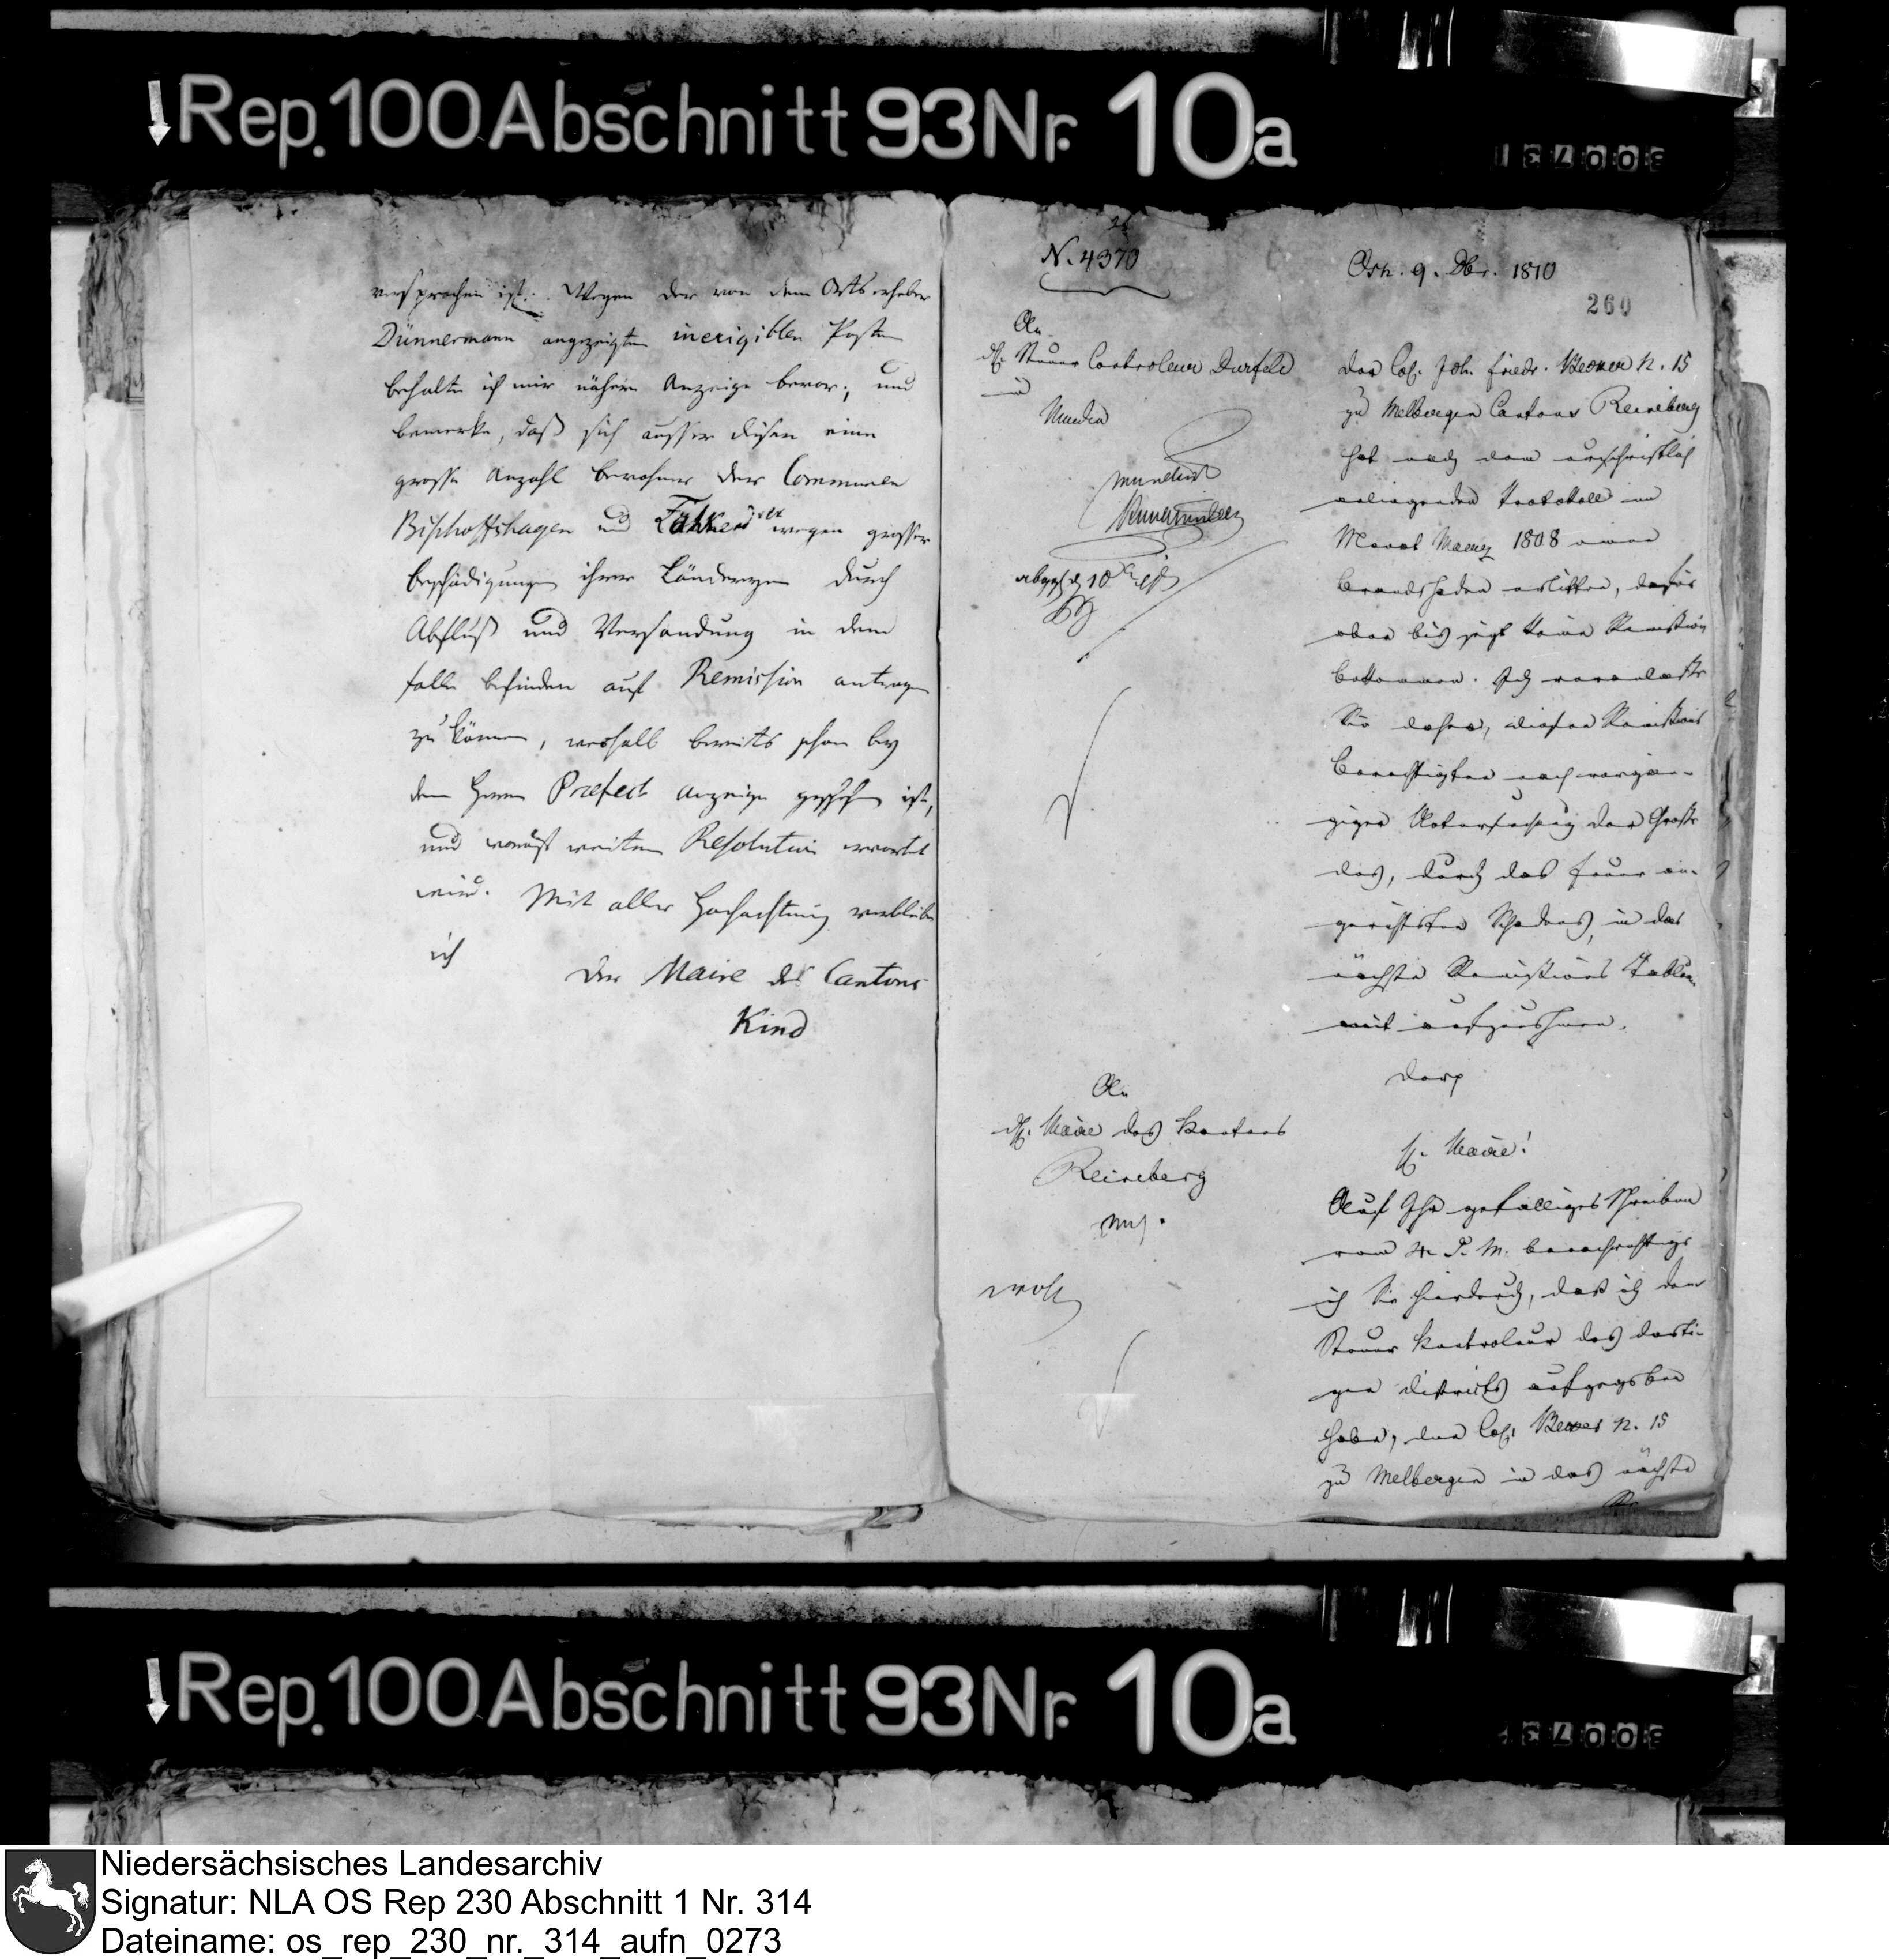 Rep. 100 Abschnitt 93 Nr. 10a
versprochen ist. Wegen der von dem Orts erheber
Dünnermann angezeigten inexigiblen Posten
behalte ich mir nähere Anzeige bevor, und
bemerke, daß sich ausser diesen eine
grosse Anzahl bewohner der Commune
Bischoffshagen und wegen grosser
beschädigungen ihrer Ländereyen durch
Abfluß und Versandung in dem
falle befinden auf Remission antragen
zu können, weshalb bereits schon bey
dem Herrn Praefect Anzeige geschehen ist,
und worauf weitere Resolution erwartet
wird. Mit aller Hochachtung verbleibe
ich
Der Maire des Cantons
Kind
N. 4370
Osn. 9. Dbr. 1810
260
An
H. Steuer Controleur Durfeld
in
Minden
abgesch. d. 10
Der Col. Joh. Friedr. n. 15
zu Melbergen Cantons Reineberg
hat nach dem urschriftlich
anliegenden Protokoll im
Monat Maerz 1808 einen
Brandschaden erlitten, dafür
aber bis jetzt keine Remission
bekommen. Ich veranlasse
Sie daher, diesen Remissions
berechtigten nach vorgän-
giger Untersuchung der Größe
des, durch das Feuer an-
gerichteten Schadens, in das
nächste Remissions Tableau
mit aufzunehmen.
An
H. Maire des Kantons
Reineberg
H. Maire!
Auf Ihr gefälliges Schreiben
vom 4. d. M. benachrichtige
ich Sie hierdurch, daß ich dem
Steuer Kontroleur des dorti-
gen Districts aufgegeben
habe, den Col. n. 15
zu Melbergen in das nächste
Rep. 100 Abschnitt 93 Nr. 10a
Niedersächsisches Landesarchiv
Signatur: NLA OS Rep 230 Abschnitt 1 Nr. 314
Dateiname: os_rep_230_nr._314_aufn_0273